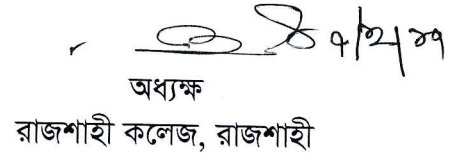 অধ্যক্ষ
রাজশাহী কলেজ, রাজশাহী